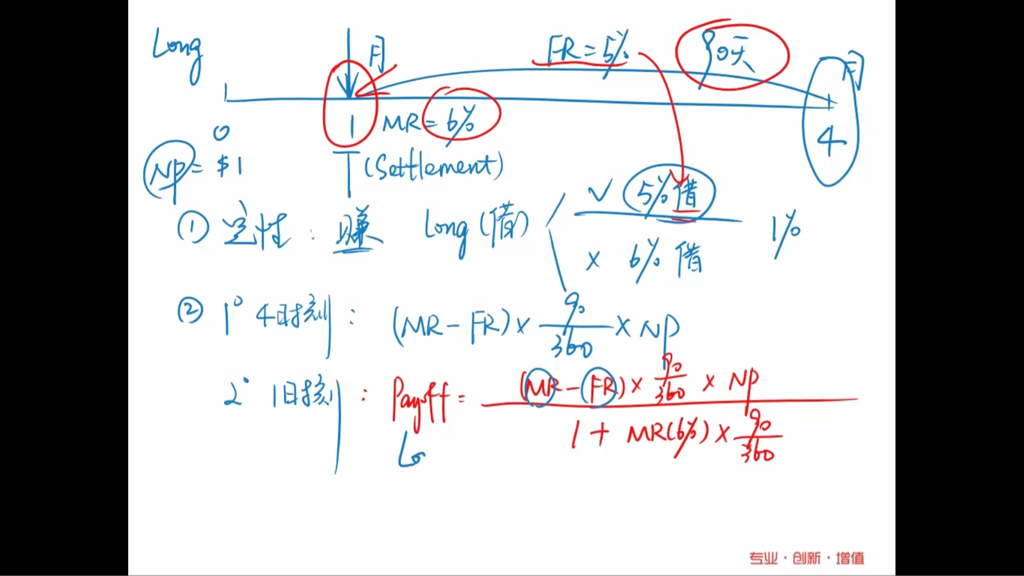 Long 月 FR=5% 90天 月
0 1 MR=6% 4
NP=$1 T(Settlement)
① 定性:赚 Long(借) √ 5%借 1%
× 6%借
② 1° 4时刻: (MR-FR)× 90/360 ×NP
2° 1时刻: Payoff= (MR-FR)× 90/360 ×NP
1+MR(6%)× 90/360
Lo
专业·创新·增值